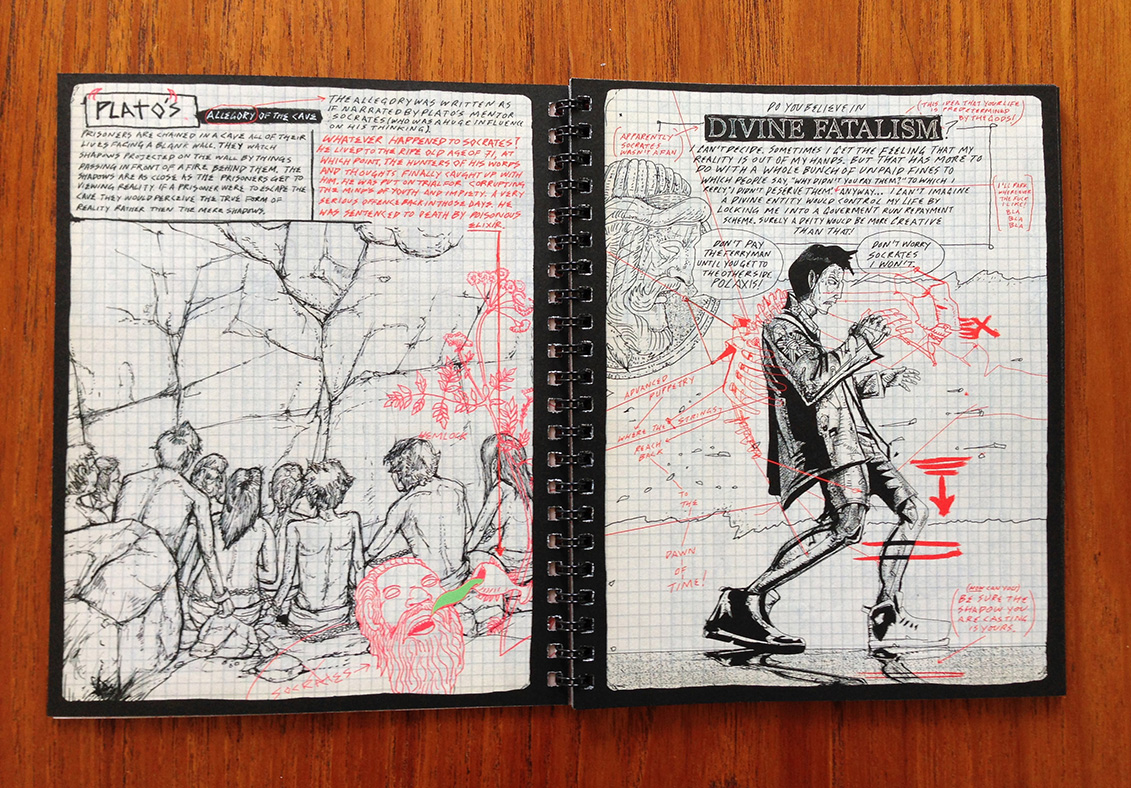 PLATO'S
ALLEGORY OF THE CAVE
PRISONERS ARE CHAINED IN A CAVE ALL OF THEIR
LIVES FACING A BLANK WALL. THEY WATCH
SHADOWS PROJECTED ON THE WALL BY THINGS
PASSING IN FRONT OF A FIRE BEHIND THEM. THE
SHADOWS ARE AS CLOSE AS THE PRISONERS GET TO
VIEWING REALITY. IF A PRISONER WERE TO ESCAPE THE
CAVE THEY WOULD PERCEIVE THE TRUE FORM OF
REALITY RATHER THEN THE MERE SHADOWS.
THE ALLEGORY WAS WRITTEN AS
IF NARRATED BY PLATO'S MENTOR
SOCRATES (WHO WAS A HUGE INFLUENCE
ON HIS THINKING).
WHATEVER HAPPENED TO SOCRATES?
HE LIVED TO THE RIPE OLD AGE OF 71, AT
WHICH POINT, THE HUNTERS OF HIS WORDS
AND THOUGHTS FINALLY CAUGHT UP WITH
HIM. HE WAS PUT ON TRIAL FOR CORRUPTING
THE MINDS OF YOUTH AND IMPIETY. A VERY
SERIOUS OFFENCE BACK IN THOSE DAYS. HE
WAS SENTENCED TO DEATH BY POISONOUS
ELIXIR.
HEMLOCK
SOCRATES
DO YOU BELIEVE IN
DIVINE FATALISM?
(THIS IDEA THAT YOUR LIFE
IS PREDETERMINED
BY THE GODS!)
(APPARENTLY
SOCRATES
WASN'T A FAN)
I CAN'T DECIDE. SOMETIMES I GET THE FEELING THAT MY
REALITY IS OUT OF MY HANDS. BUT THAT HAS MORE TO
DO WITH A WHOLE BUNCH OF UNPAID FINES TO
WHICH PEOPLE SAY "WHY DIDN'T YOU PAY THEM?" TO WHICH I
REPLY "I DIDN'T DESERVE THEM!" ANYWAY... I CAN'T IMAGINE
A DIVINE ENTITY WOULD CONTROL MY LIFE BY
LOCKING ME INTO A GOVERMENT RUN REPAYMENT
SCHEME. SURELY A DEITY WOULD BE MORE CREATIVE
THAN THAT!
I'LL PARK
WHEREVER
THE FUCK
I LIKE!
BLA
BLA
BLA
DON'T PAY
THE FERRYMAN
UNTIL YOU GET TO
THE OTHER SIDE
POLAXIS!
DON'T WORRY
SOCRATES
I WON'T.
ADVANCED
PUPPETRY
WHERE THE STRINGS
REACH
BACK
TO THE
DAWN
OF
TIME!
(HOW CAN YOU)
BE SURE THE
SHADOW YOU
ARE CASTING
IS YOURS.